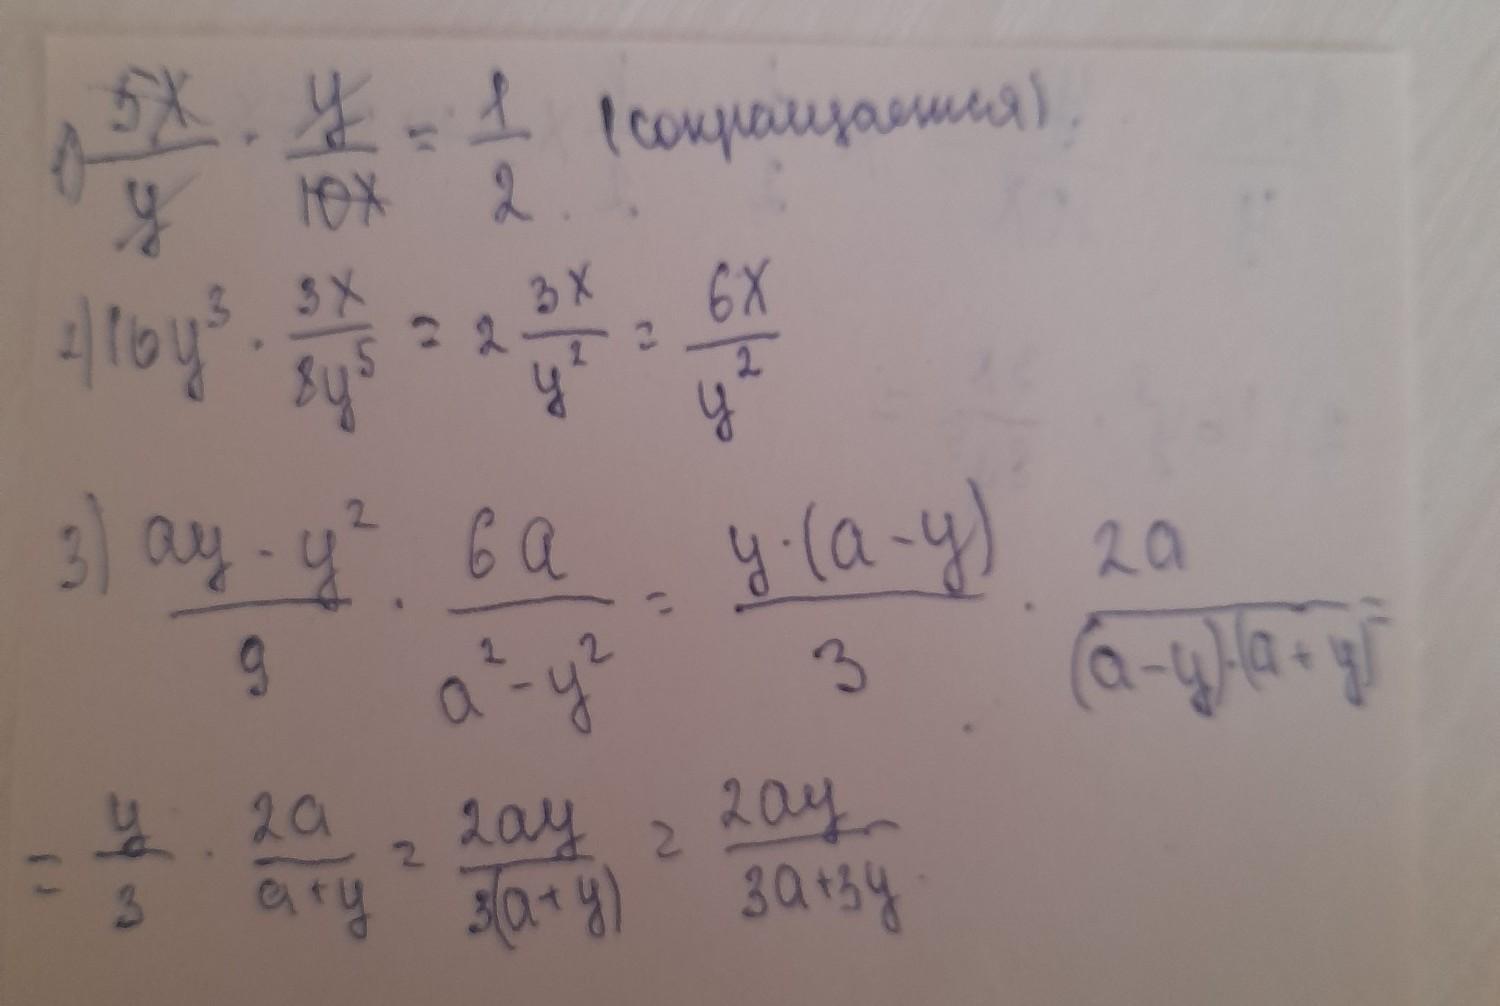 1) 5x/y · y/10x = 1/2 (сокращается).
2) 16y³ · 3x/8y⁵ = 2 3x/y² = 6x/y²
3) ay - y²/9 · 6a/a² - y² = y·(a - y)/3 · 2a/(a - y)·(a + y) =
= y/3 · 2a/a + y = 2ay/3(a + y) = 2ay/3a + 3y